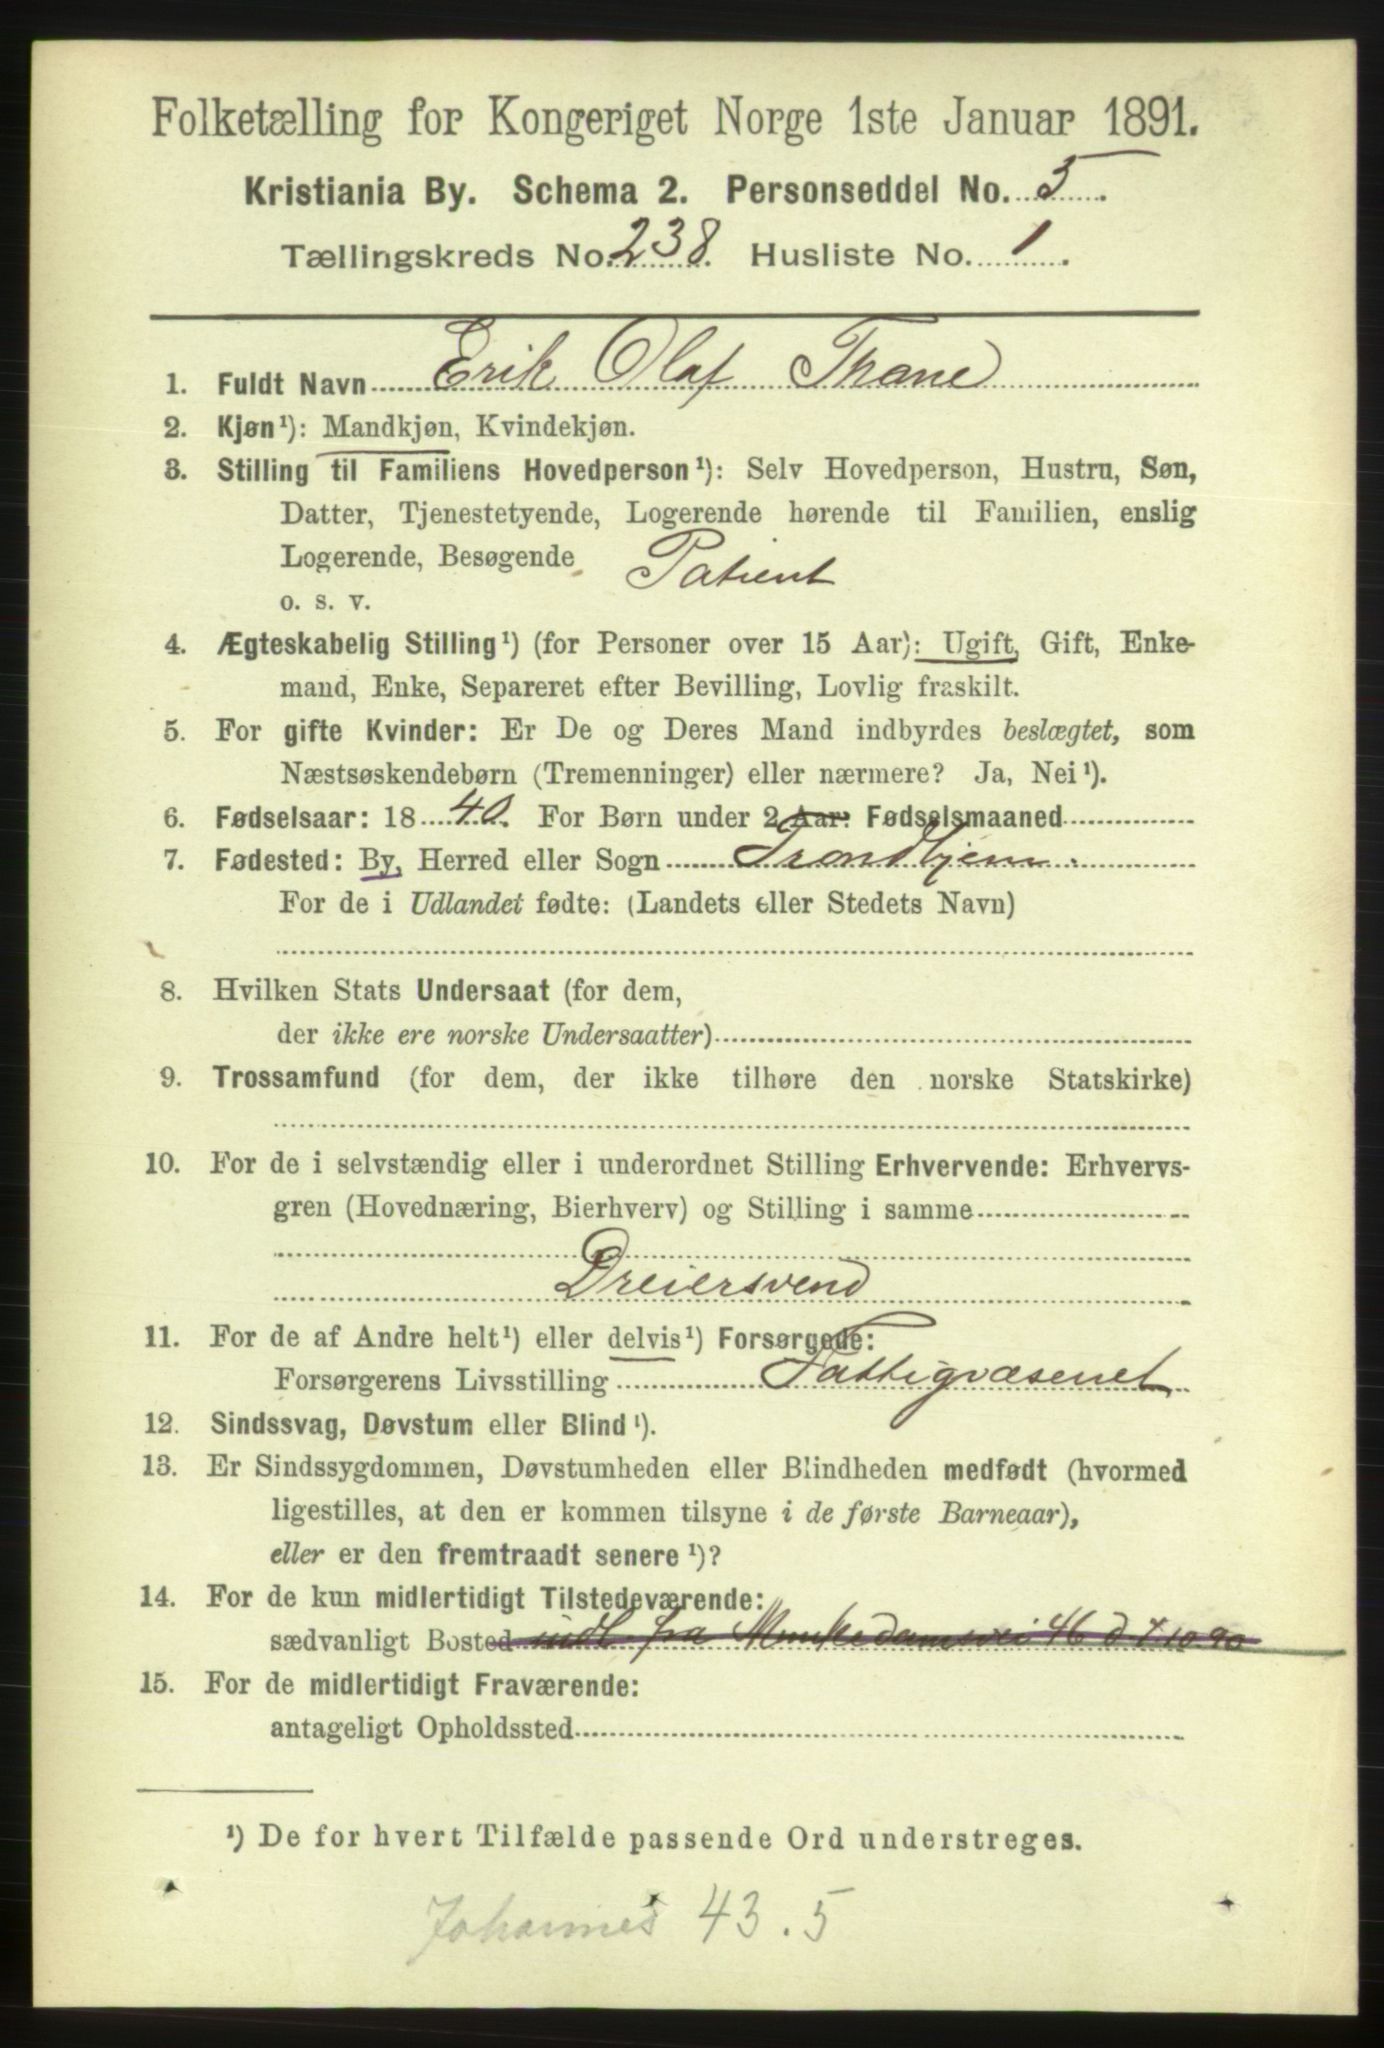 Folketælling for Kongeriget Norge 1ste Januar 1891.
Kristiania By. Schema 2. Personseddel No. 5.
Tællingskreds No. 238. Husliste No. 1.
1. Fuldt Navn Erik Olaf Thane
2. Kjøn¹): Mandkjøn, Kvindekjøn.
3. Stilling til Familiens Hovedperson¹): Selv Hovedperson, Hustru, Søn,
Datter, Tjenestetyende, Logerende hørende til Familien, enslig
Logerende, Besøgende Patient
o. s. v.
4. Ægteskabelig Stilling¹) (for Personer over 15 Aar): Ugift, Gift, Enke-
mand, Enke, Separeret efter Bevilling, Lovlig fraskilt.
5. For gifte Kvinder: Er De og Deres Mand indbyrdes beslægtet, som
Næstsøskendebørn (Tremenninger) eller nærmere? Ja, Nei¹).
6. Fødselsaar: 1840. For Børn under 2 Aar: Fødselsmaaned
7. Fødested: By, Herred eller Sogn Trondhjem.
For de i Udlandet fødte: (Landets eller Stedets Navn)
8. Hvilken Stats Undersaat (for dem,
der ikke ere norske Undersaatter)
9. Trossamfund (for dem, der ikke tilhøre den norske Statskirke)
10. For de i selvstændig eller i underordnet Stilling Erhvervende: Erhvervs-
gren (Hovednæring, Bierhverv) og Stilling i samme
Dreiersvend
11. For de af Andre helt¹) eller delvis¹) Forsørgede:
Forsørgerens Livsstilling Fattigvæsenet
12. Sindssvag, Døvstum eller Blind¹).
13. Er Sindssygdommen, Døvstumheden eller Blindheden medfødt (hvormed
ligestilles, at den er kommen tilsyne i de første Barneaar),
eller er den fremtraadt senere¹)?
14. For de kun midlertidigt Tilstedeværende:
sædvanligt Bosted indl. fra Munkedamsvei 46 d 7 10.90
15. For de midlertidigt Fraværende:
antageligt Opholdssted
¹) De for hvert Tilfælde passende Ord understreges.
Johannes 43.5